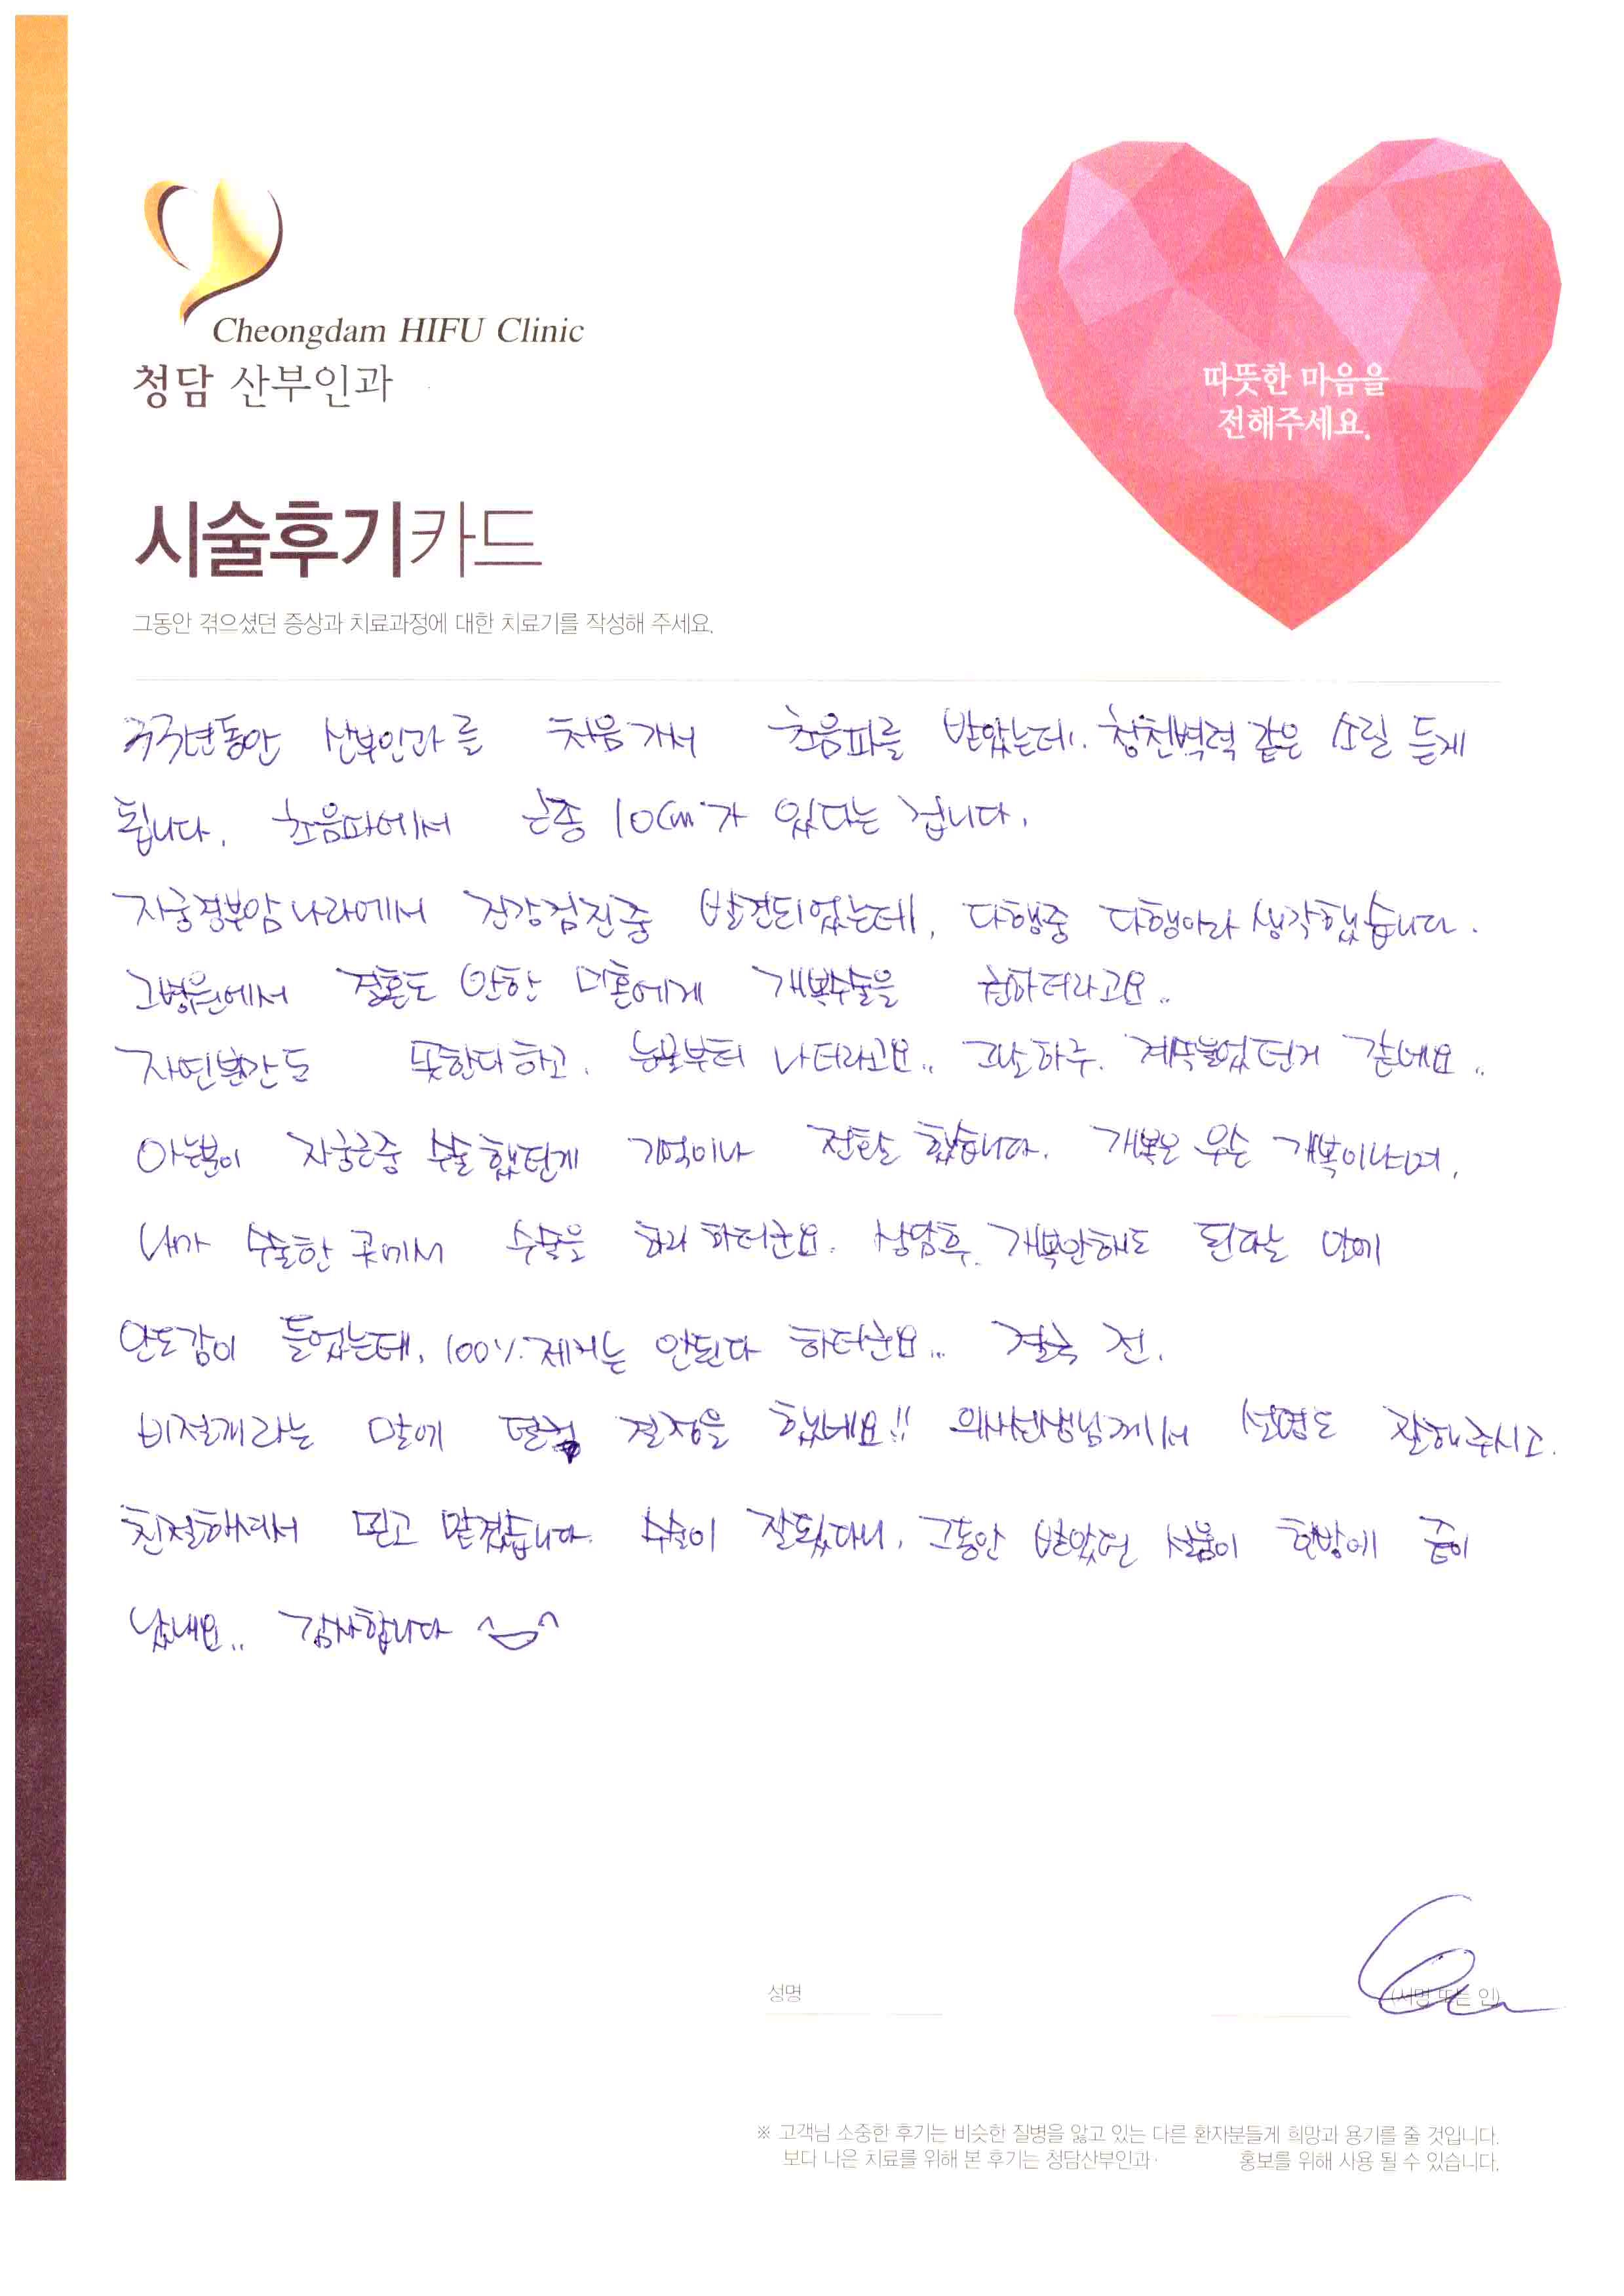 Cheongdam HIFU Clinic
청담 산부인과
따뜻한 마음을
전해주세요.
시술후기카드
그동안 겪으셨던 증상과 치료과정에 대한 치료기를 작성해 주세요.
산부인과를 처음가서 초음파를 받았는데.. 청천벽력 같은 소릴 듣게
됩니다. 초음파에서 근종 10cm가 있다는 겁니다.
자궁경부암 나라에서 건강검진중 발견되었는데, 다행중 다행이라 생각했습니다.
그병원에서 결혼도 안한 미혼에게 개복수술을 권하더라고요..
자연분만도 못한다하고. 눈물부터 나더라고요.. 그날 하루. 계속울었던거 같네요..
아는분이 자궁근종 수술했던게 기억이나 전화를 했습니다. 개복은 무슨 개복이냐며,
내가 수술한 곳에서 수술을 하라 하더군요. 상담후. 개복안해도 된다는 말에
안도감이 들었는데, 100% 제거는 안된다 하더군요... 결국 전.
비절개라는 말에 덜컥 결정을 했네요!! 의사선생님께서 설명도 잘해주시고.
친절하셔서 믿고 맡겼습니다. 수술이 잘됬다니, 그동안 받았던 설움이 한방에 끝이
났네요.. 감사합니다 ^^
성명
(서명 또는 인)
※ 고객님 소중한 후기는 비슷한 질병을 앓고 있는 다른 환자분들게 희망과 용기를 줄 것입니다.
보다 나은 치료를 위해 본 후기는 청담산부인과· 홍보를 위해 사용 될 수 있습니다.